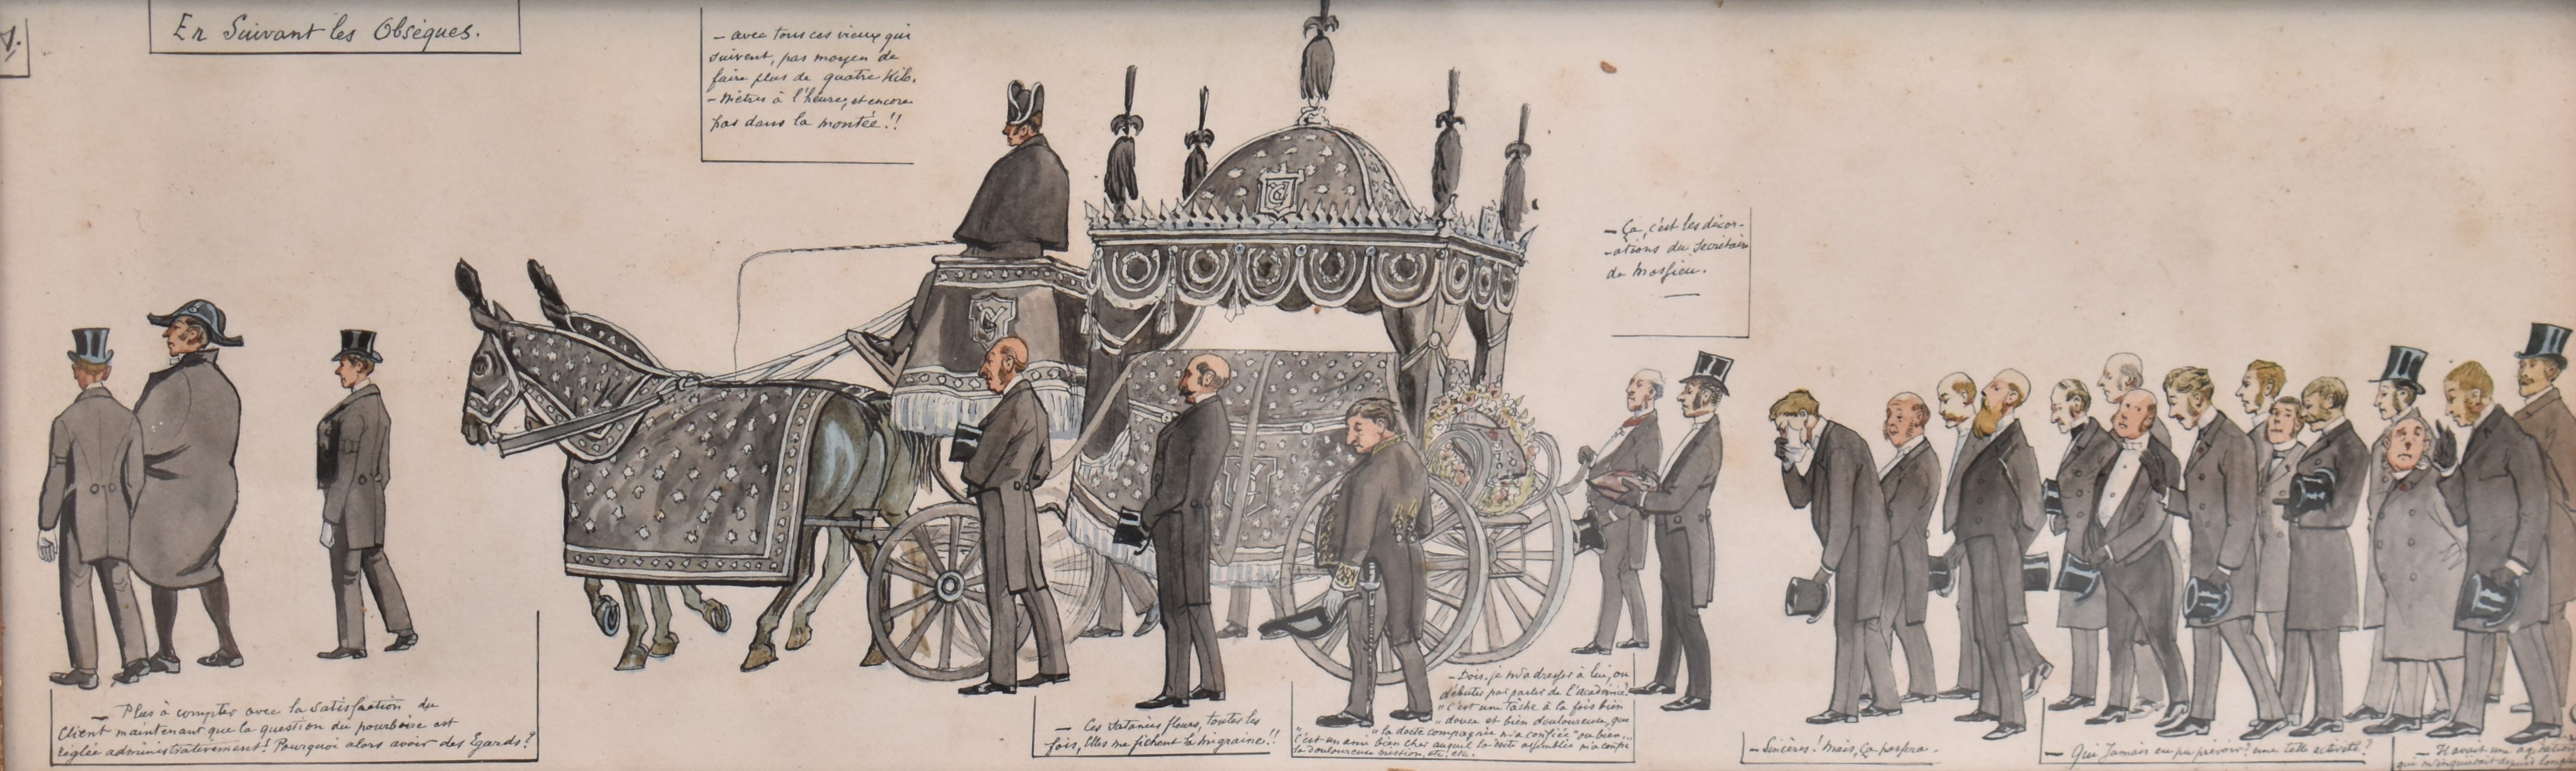 1.
En Suivant les Obsèques.
- avec tous ces vieux qui
suivent, pas moyen de
faire plus de quatre kilo.
- mètres à l'heure, et encore
pas dans la montée!!
- Ça, c'est les décor-
-ations du Secrétaire
de Mossieu.
- Plus à compter avec la satisfaction du
Client maintenant que la question du pourboire est
réglée administrativement! Pourquoi alors avoir des Egards?
- Ces satanées fleurs, toutes les
fois, Elles me fichent la migraine!!
- Dois-je m'adresser à lui, ou
débuter par parler de l'académie?
"C'est une tâche à la fois bien
"douce et bien douloureuse, que
"la docte compagnie m'a confiée" ou bien...
"C'est un ami bien cher auquel la docte assemblée m'a confié
la douloureuse mission, etc, etc.
- Sincères! Mais, ça passera.
- Qui Jamais eu pu prévoir? une telle activité?
- Il avait une agitation
qui m'inquiétait depuis